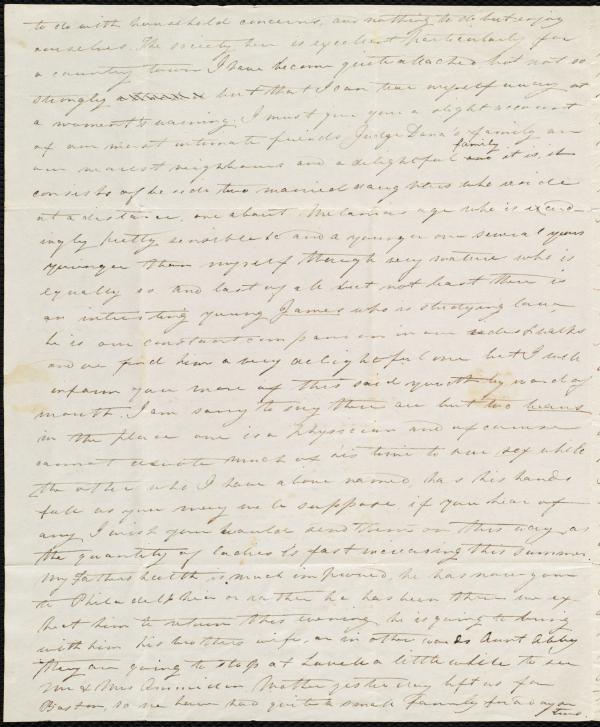 to do with household concerns, and nothing to do but enjoy
ourselves. The society here is excellent particularly for
a country town I have become quite attached but not so
strongly but that I can tear myself away at
a moment's warning. I must give you a slight account
of our most intimate friends Judge Dana's family are
our nearest neighbours and a delightful family it is, it
consists of beside two married daughters who reside
at a distance, one about Melania's age who is exceed-
ingly pretty, sensible &c and a younger one several years
younger than myself though very mature who is
equally so and last of all but not least there is
an interesting young James who is studying law,
he is our constant companion in our rides & walks
and we find him a very delightful one but I will
inform you more of this said youth by word of
mouth. I am sorry to say there are but two beaus
in the place one is a physician and of course
cannot devote much of his time to our sex while
the other who I have above named, has his hands
full as you may well suppose, if you hear of
any I wish you would send them on this way, as
the quantity of ladies is fast increasing this summer.
My fathers health is much improved, he has now gone
to Philadelphia or rather he has been there we ex
pect him to return this evening, he is going to bring
with him his brothers wife, or in other words Aunt Abby
They are going to stop at Lowell a little while to see
Mr & Mrs Ammidon Mother yesterday left us for
Boston, so we have had quite a small family for a day or
two.